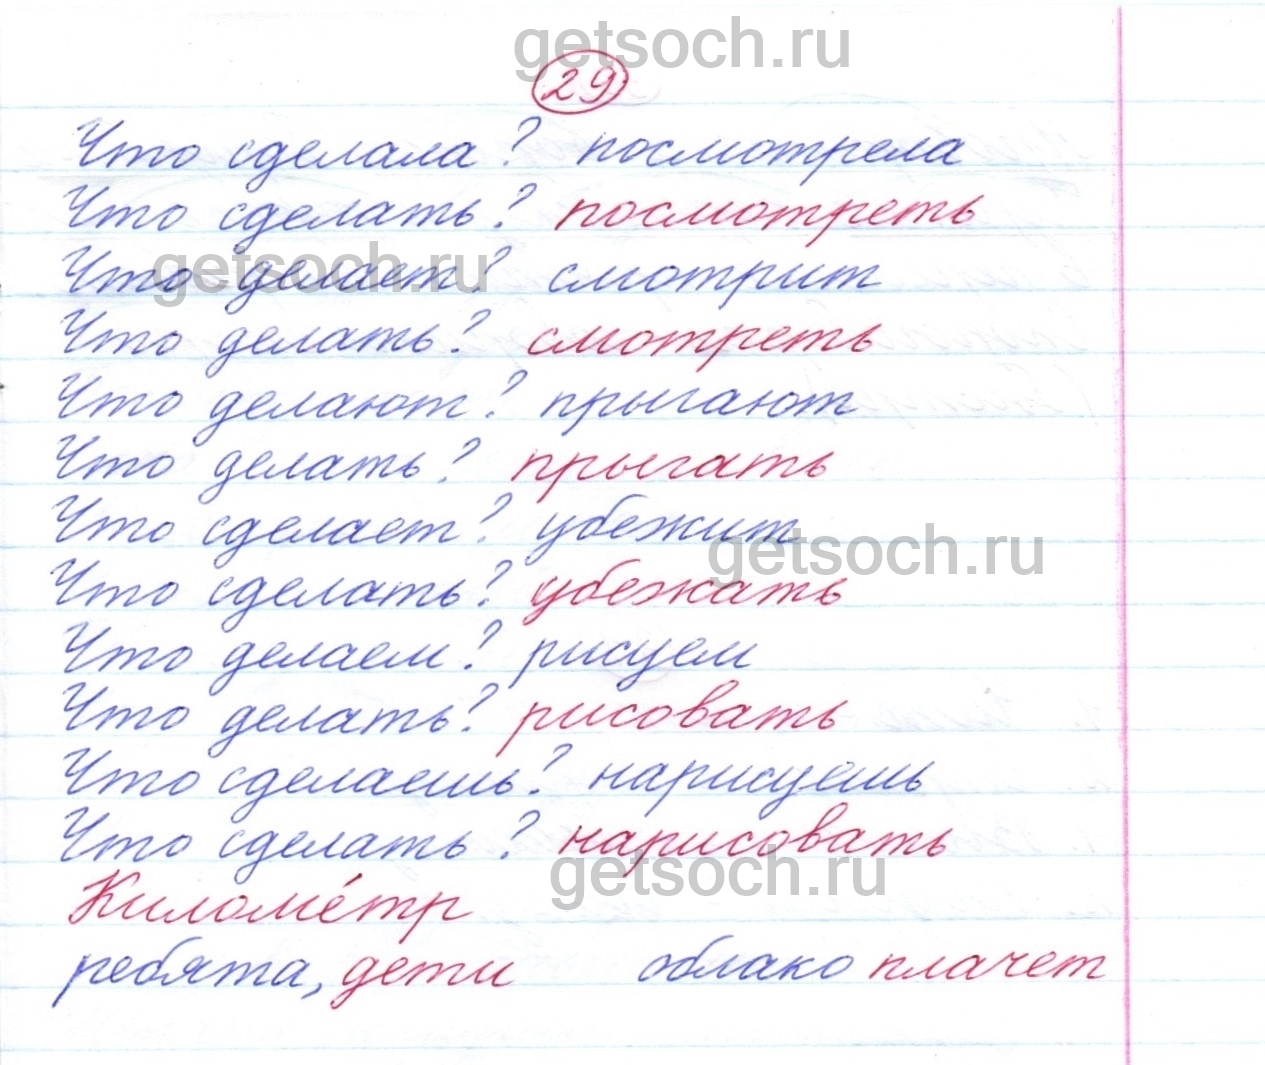 getsoch.ru
29
Что сделала? посмотрела
Что сделать? посмотреть
Что делает? смотрит
getsoch.ru
Что делать? смотреть
Что делают? прыгают
Что делать? прыгать
Что сделает? убежит
getsoch.ru
Что сделать? убежать
Что делаем? рисуем
Что делать? рисовать
Что сделаешь? нарисуешь
Что сделать? нарисовать
getsoch.ru
Киломе́тр
ребята, дети облако плачет